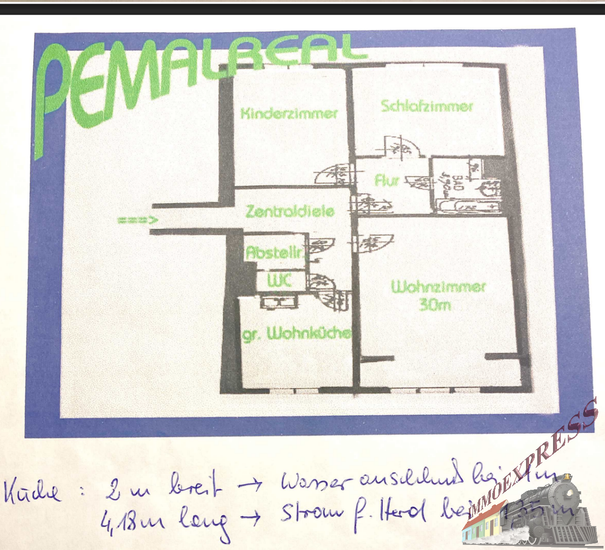 PEMALREAL
Kinderzimmer
Schlafzimmer
Flur
BAD
Zentraldiele
===>
Abstellr.
WC
Wohnzimmer
30m
gr. Wohnküche
IMMOEXPRESS
Küche : 2 m breit → Wasseranschluß bei
4,18m lang → Strom f. Herd bei